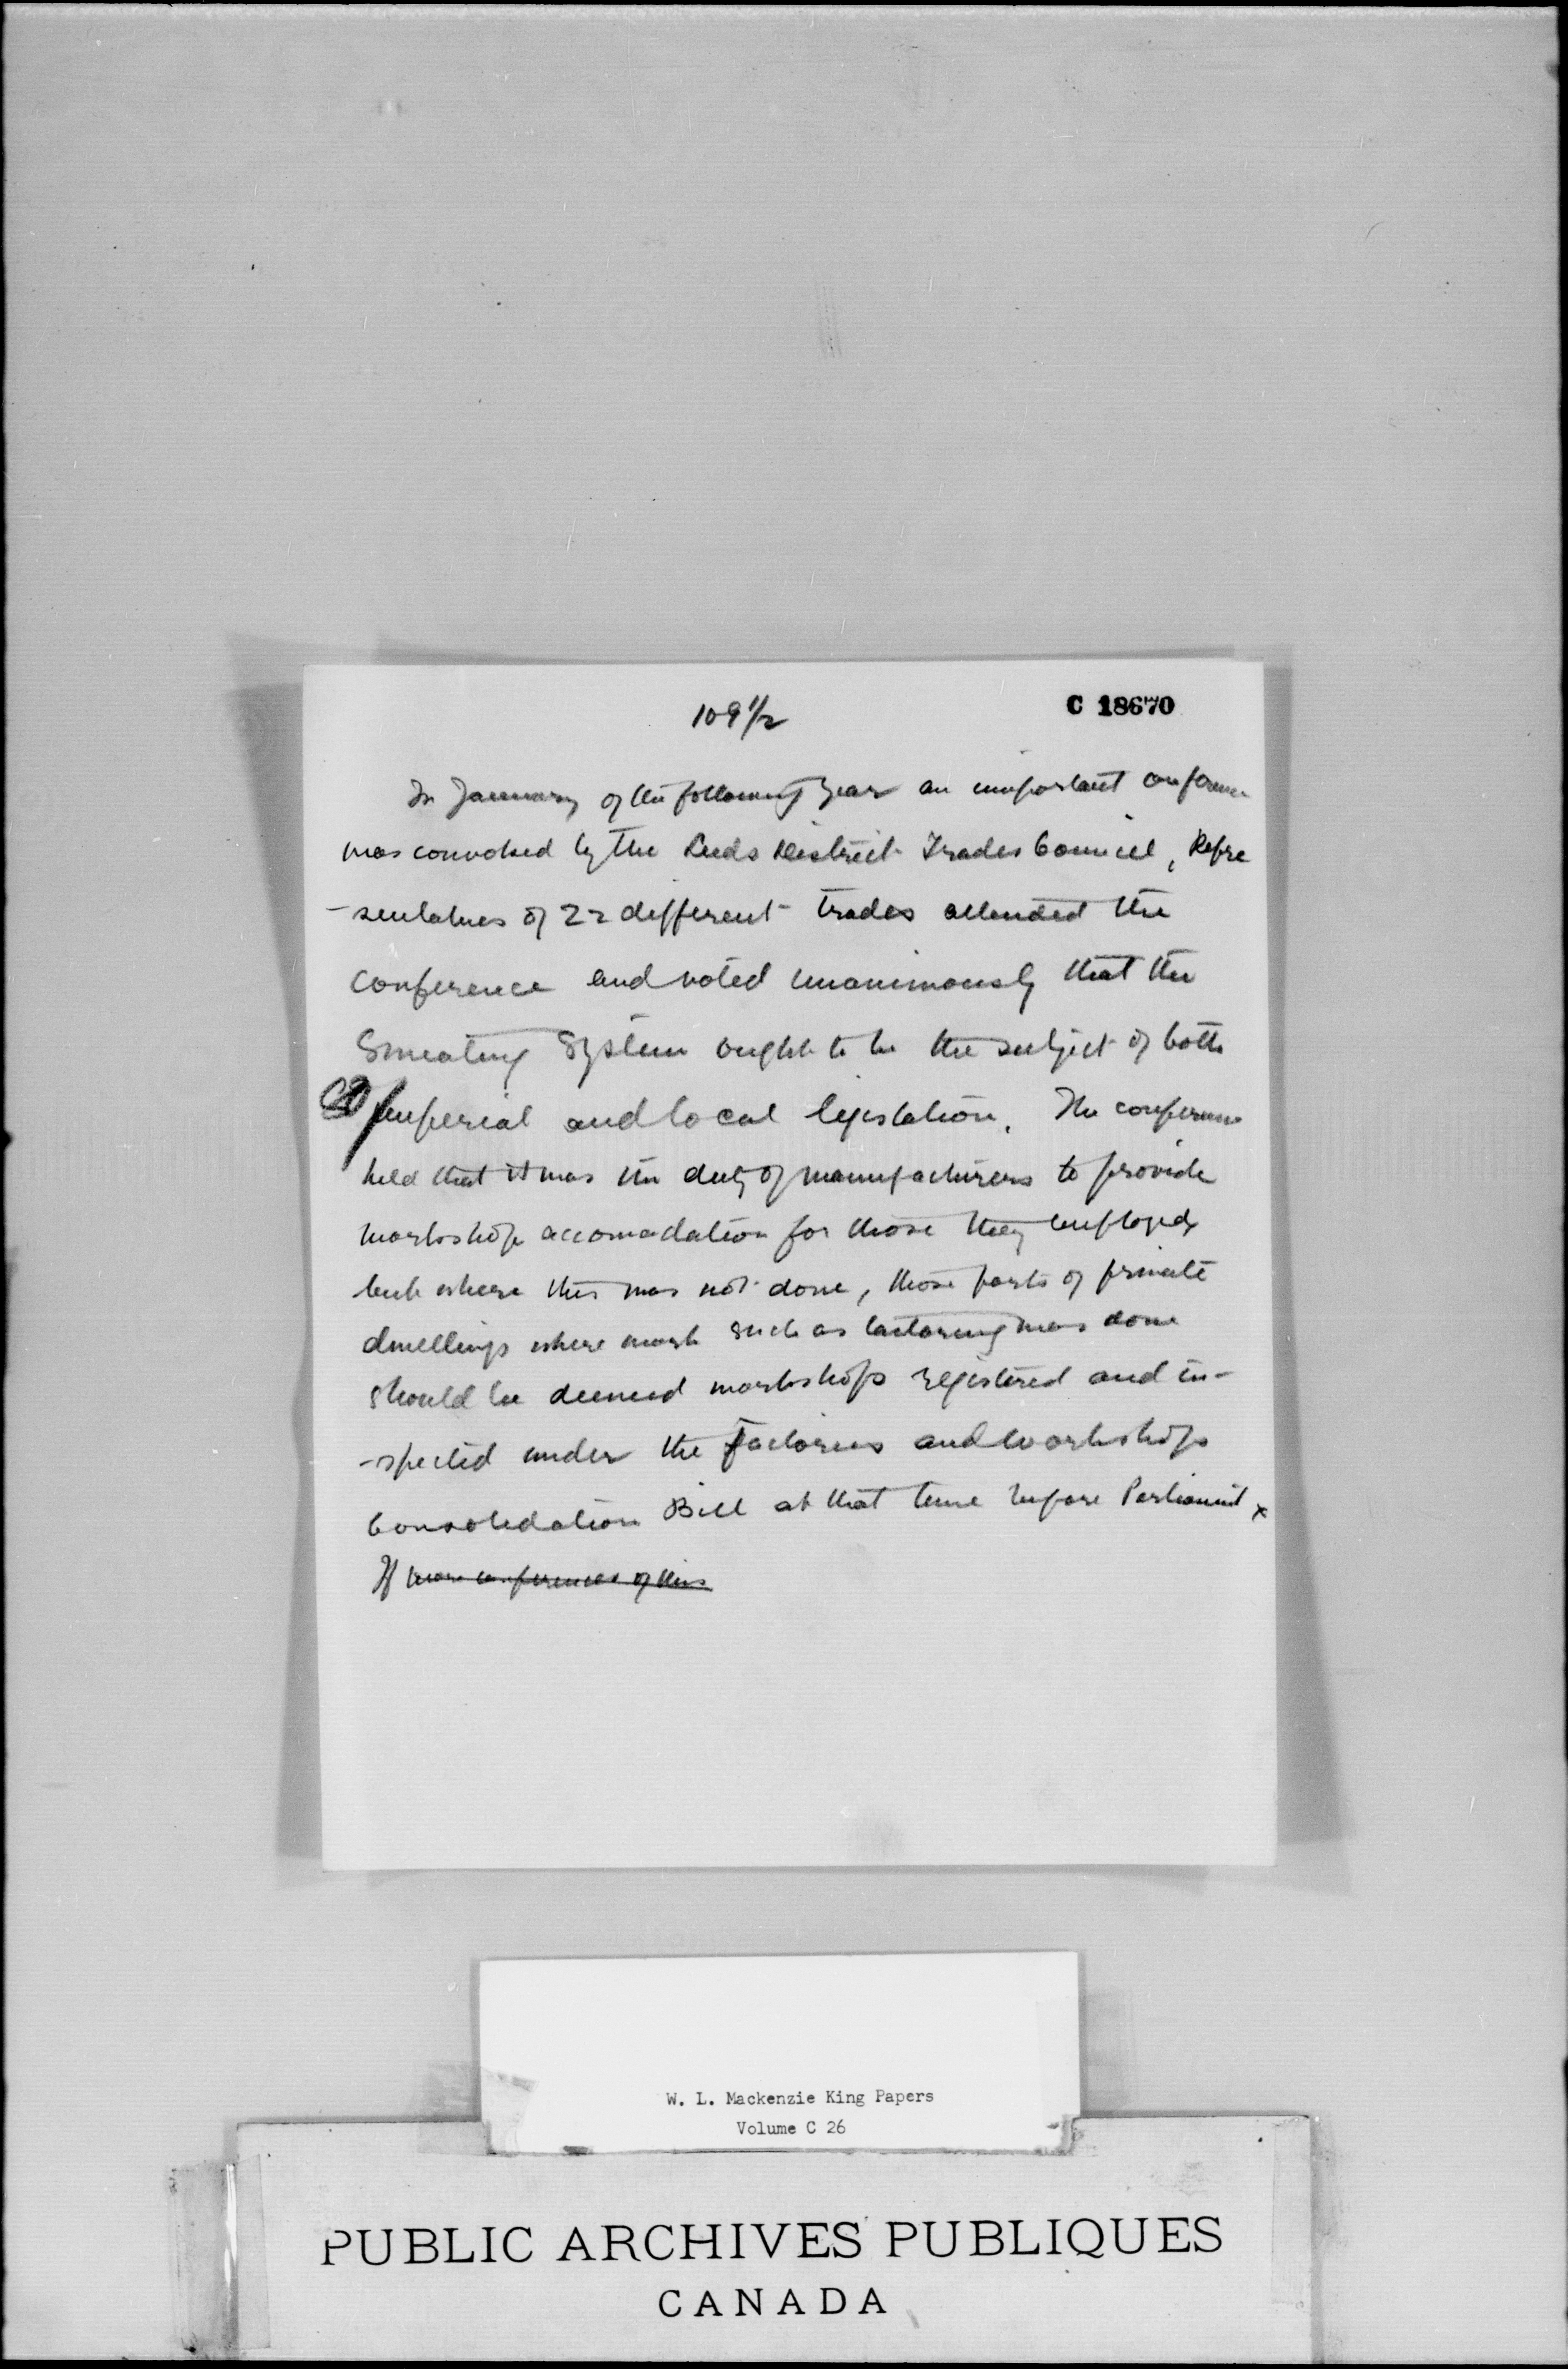 109 1/2
C 18670
In January of the following year an important conference
was convoked by the Leeds District Trades Council, Repre
-sentatives of 22 different trades attended the
conference and voted unanimously that the
Sweating System ought to be the subject of both
Imperial and local legislation. The conference
held that it was the duty of manufacturers to provide
workshop accomodation for those they employed
but where this was not done, those parts of private
dwellings where work such as tailoring was done
should be deemed workshops registered and in-
-spected under the Factories and Workshops
Consolidation Bill at that time before Parliament x
If more conferences of this
W. L. Mackenzie King Papers
Volume C 26
PUBLIC ARCHIVES PUBLIQUES
CANADA